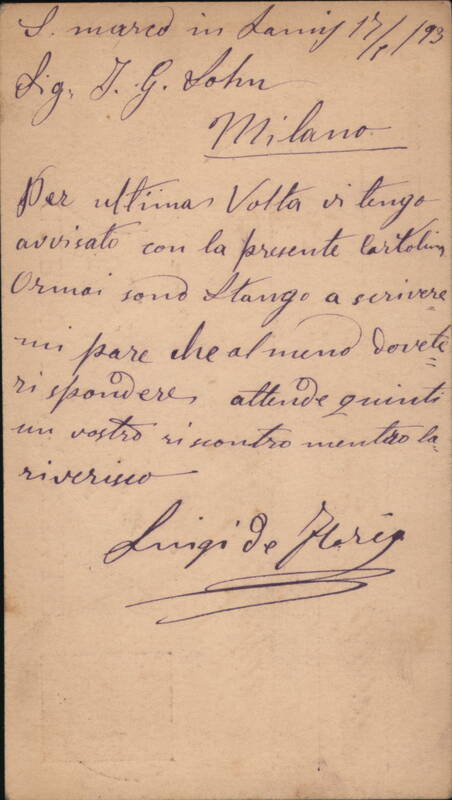 S. marco in Lamis 17/1/93
Sig. J. G. Sohn
Milano
Per ultima Volta vi tengo
avvisato con la presente Cartolina
Ormai sono Stango a scrivere
mi pare che almeno dovete
rispondere attende quinti
un vostro riscontro mentro la
riverisco
Luigi de